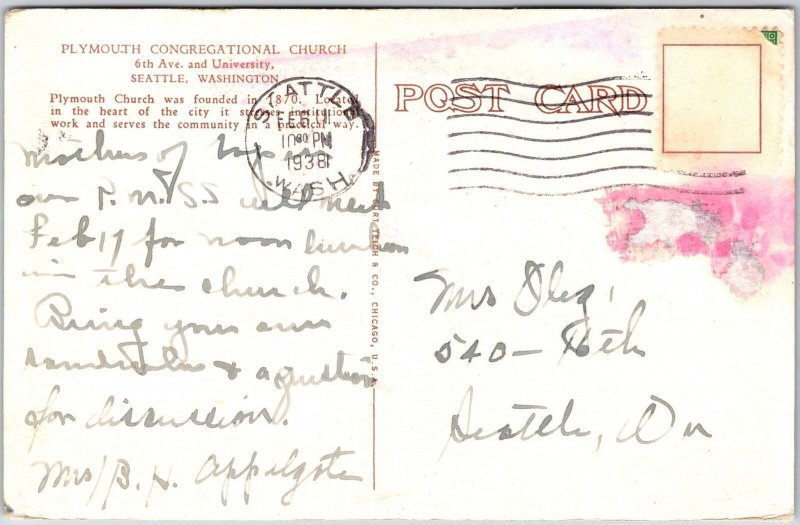 PLYMOUTH CONGREGATIONAL CHURCH
6th Ave. and University,
SEATTLE, WASHINGTON
Plymouth Church was founded in 1870. Located
in the heart of the city it stresses institutional
work and serves the community in a practical way.
POST CARD
SEATTLE
FEB 11
10 30 PM
1938
WASH.
MADE BY CURT TEICH & CO., CHICAGO, U.S.A.
Mothers of
our P. N. S.S will meet
Feb 17 for noon luncheon
in the church.
Bring your own
sandwiches & a question
for discussion.
Mrs B. H. Applegate
Mrs
540 - 16th
Seattle, Wn